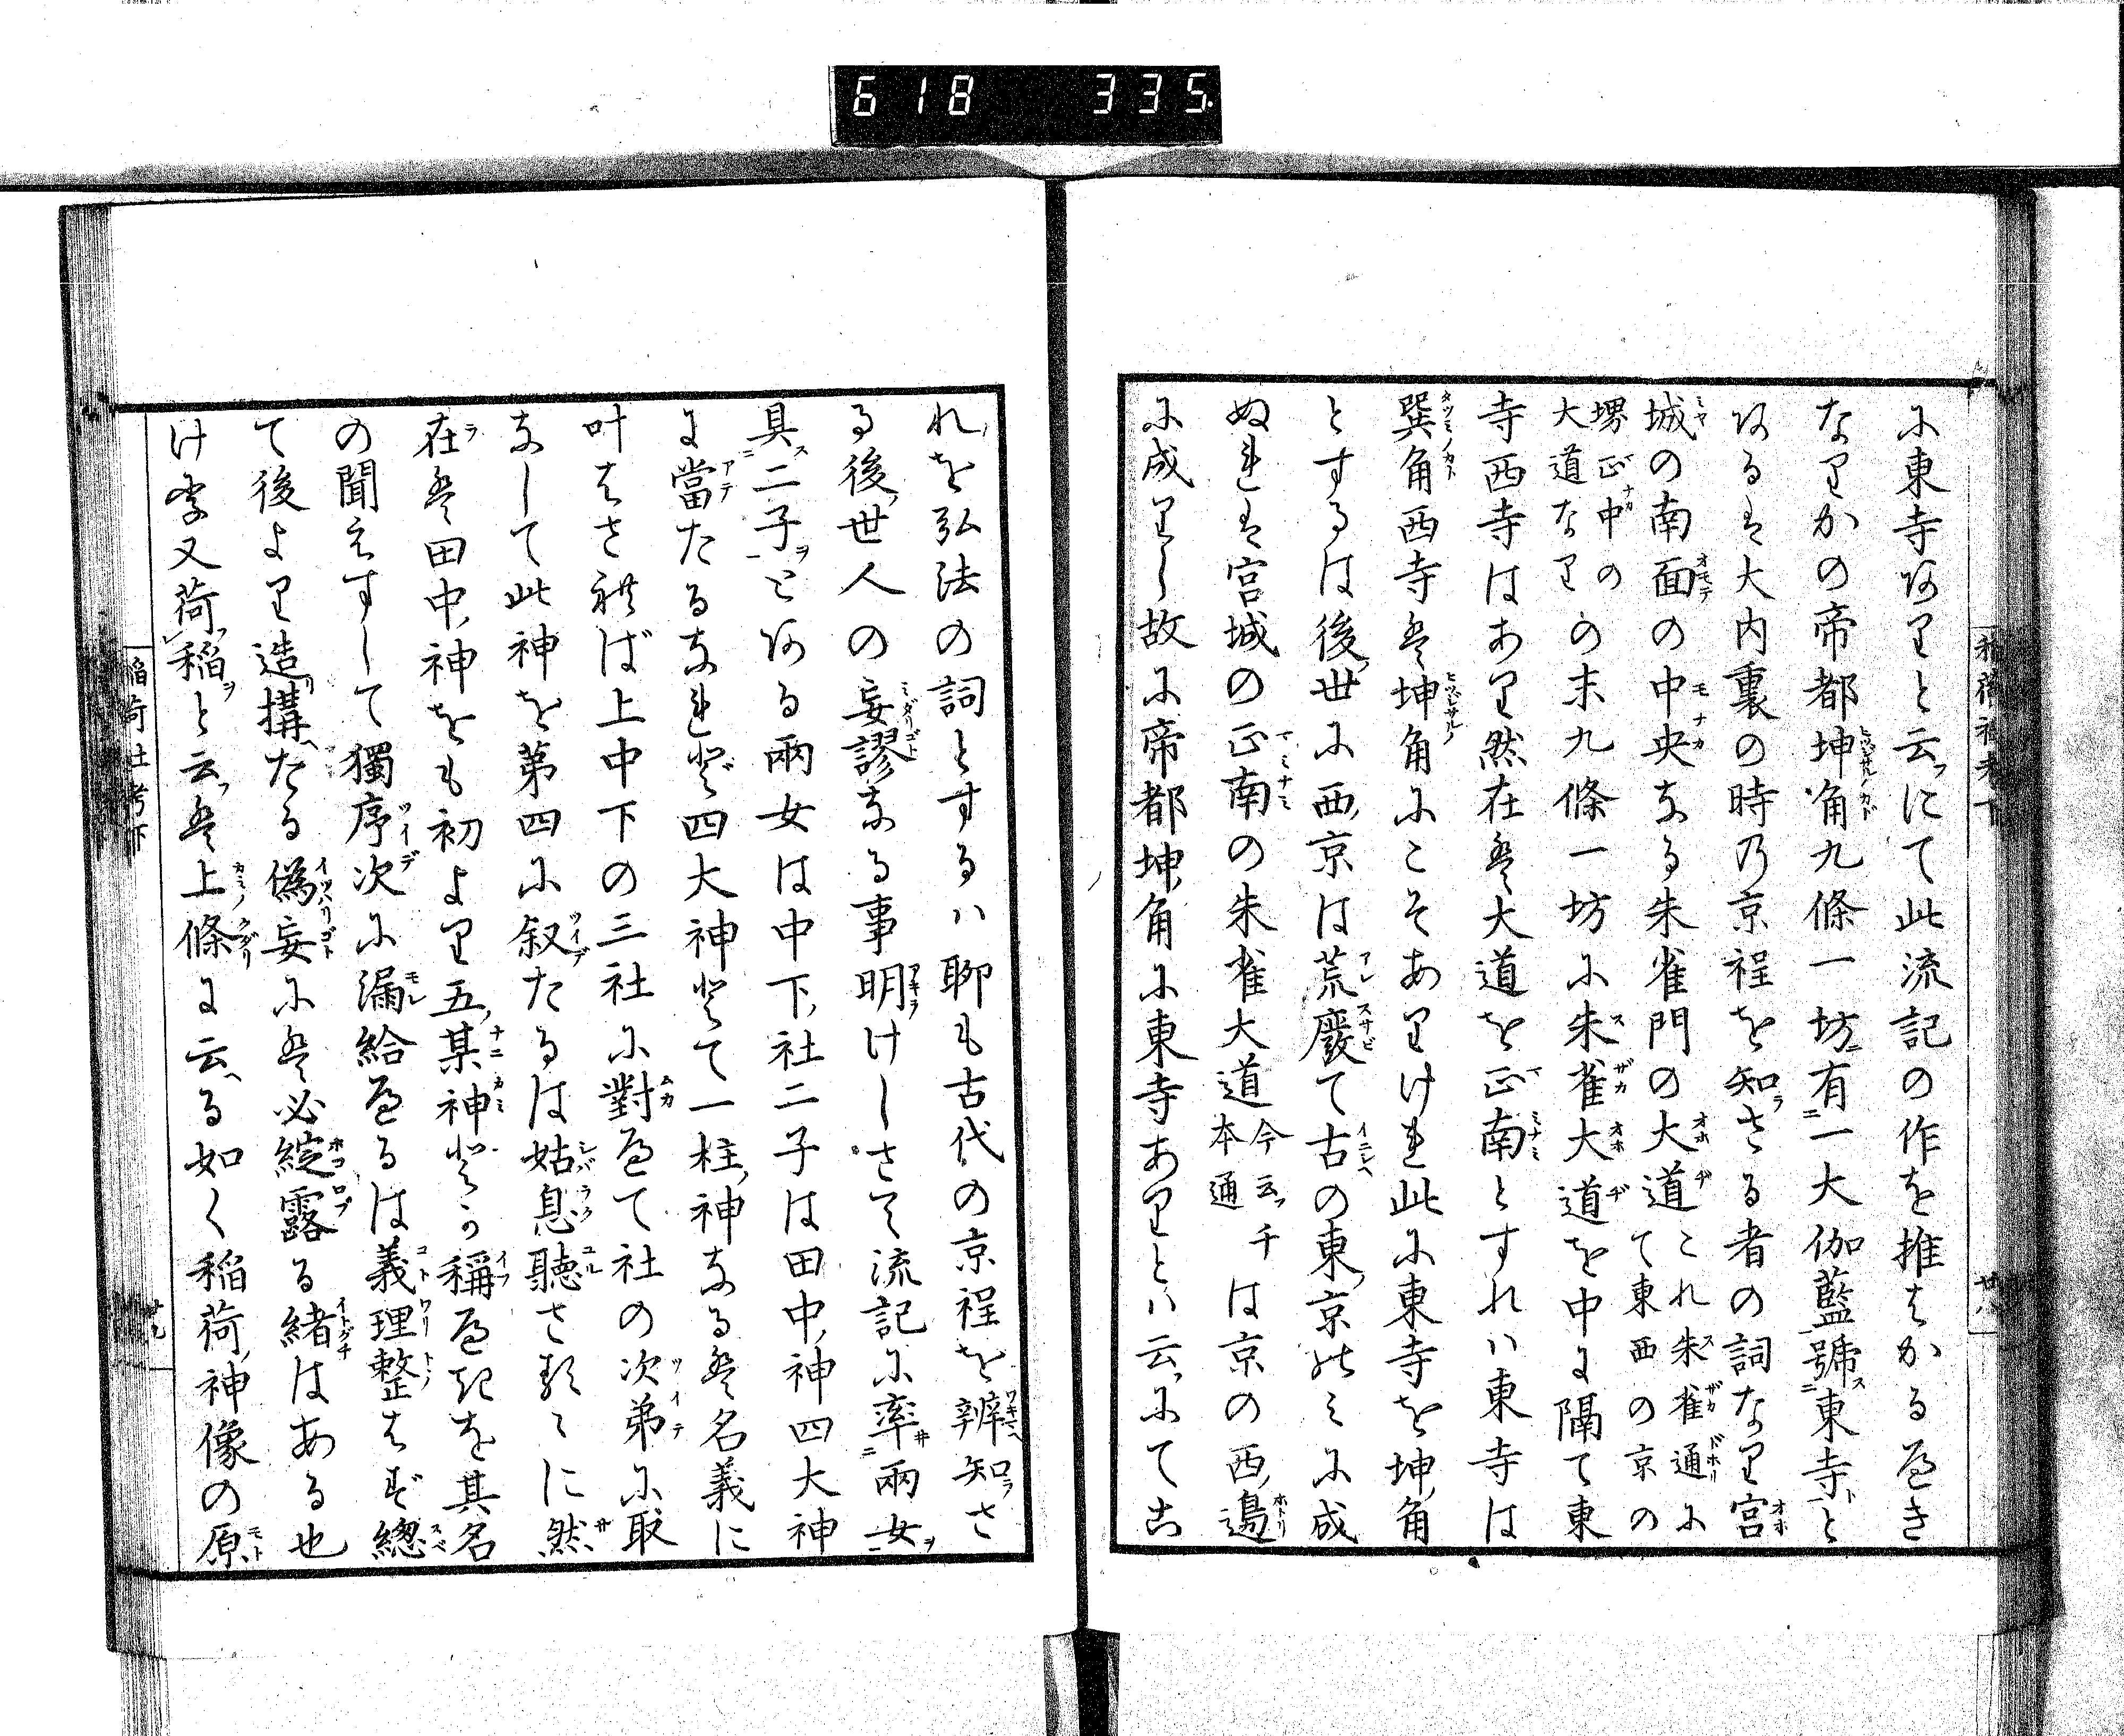 618 335
稲荷社考下
廿八
に東寺ありと云にて此流記の作を推はかるべき
なりかの帝都坤角九條一坊有一大伽藍號東寺と
あるは大内裏の時乃京程を知ざる者の詞なり宮
城の南面の中央なる朱雀門の大道これ朱雀通にて東西の京の
堺正中の大道なりの末九條一坊に朱雀大道を中に隔て東
寺西寺はあり然在は大道を正南とすれハ東寺は
巽角西寺は坤角にこそありけれ此に東寺を坤角
とするは後世に西京は荒廢て古の東京のみに成
ぬれは宮城の正南の朱雀大道今云千本通は京の西邊
に成りし故に帝都坤角に東寺ありとハ云にてこ
れを弘法の詞とするハ聊も古代の京程を辨知さ
る後世人の妄謬なる事明けしさて流記に率兩女
具二子とある兩女は中下社二子は田中神四大神
に當たるなれど四大神とて一柱神なるは名義に
叶はされば上中下の三社に對へて社の次弟に取
なして此神を第四に叙たるは姑息聽さるゝに然
在は田中神をも初より五某神とか稱べきを其名
の聞えすして獨序次に漏給へるは義理整はず總
て後より造搆たる偽妄には必綻露る緒はある也
け李又荷稲と云は上條に云る如く稲荷神像の原
稲荷社考下
廿九